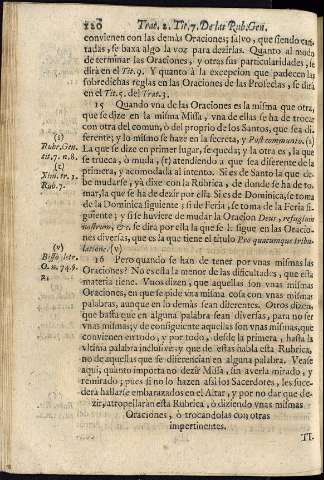 120 Trat. 2. Tit. 7. De las Rub. Gen.
convienen con las demàs Oraciones; salvo, que siendo can-
tadas, se baxa algo la voz para dezirlas. Quanto al modo
de terminar las Oraciones, y otras sus particularidades, se
dirà en el Tit. 9. Y quanto à la excepcion que padecen las
sobredichas reglas en las Oraciones de las Profecias, se dirà
en el Tit. 5. del Trat. 3.
15 Quando vna de las Oraciones es la misma que otra,
que se dize en la misma Missa, vna de ellas se ha de trocar
con otra del comun, ò del proprio de los Santos, que sea di-
ferente; y lo mismo se haze en la secreta, y Postcommunio. (s)
La que se dize en primer lugar, se queda; y la otra es, la que
se trueca, ò muda, (t) atendiendo a que sea diferente de la
primera, y acomodada al intento. Si es de Santo la que de-
be mudarse, yà dixe con la Rubrica, de donde se ha de to-
mar, la que se ha de dezir por ella. Si es de Dominica, se toma
de la Dominica siguiente; si de Feria, se toma de la Feria si-
guiente; y si se huviere de mudar la Oracion Deus, refugium
nostrum, &c. se dirà por ella la que se le sigue en las Oracio-
nes diversas, que es la que tiene el titulo Pro quacumque tribu-
latione. (v)
(s)
Rubr. Gen.
tit. 7. n. 8.
(t)
Rub. 7.
(v)
16 Pero quando se han de tener por vnas mismas las
Oraciones? No es esta la menor de las dificultades, que esta
materia tiene. Vnos dizen, que aquellas son vnas mismas
Oraciones, en que se pide vna misma cosa con vnas mismas
palabras, aunque en lo demàs sean diferentes. Otros dizen,
que basta que en alguna palabra sean diversas, para no ser
vnas mismas; y de consiguiente aquellas son vnas mismas, que
convienen en todo, y por todo, desde la primera, hasta la
vltima palabra inclusive: y que de estas habla esta Rubrica,
no de aquellas que se diferencian en alguna palabra. Vease
aqui, quanto importa no dezir Missa, sin averla mirado, y
remirado; pues si no lo hazen assi los Sacerdotes, les suce-
derà hallarse embarazados en el Altar, y por no dar que de-
zir, atropellaràn esta Rubrica, ò diziendo vnas mismas
Oraciones, ò trocandolas con otras
impertinentes.
TI.